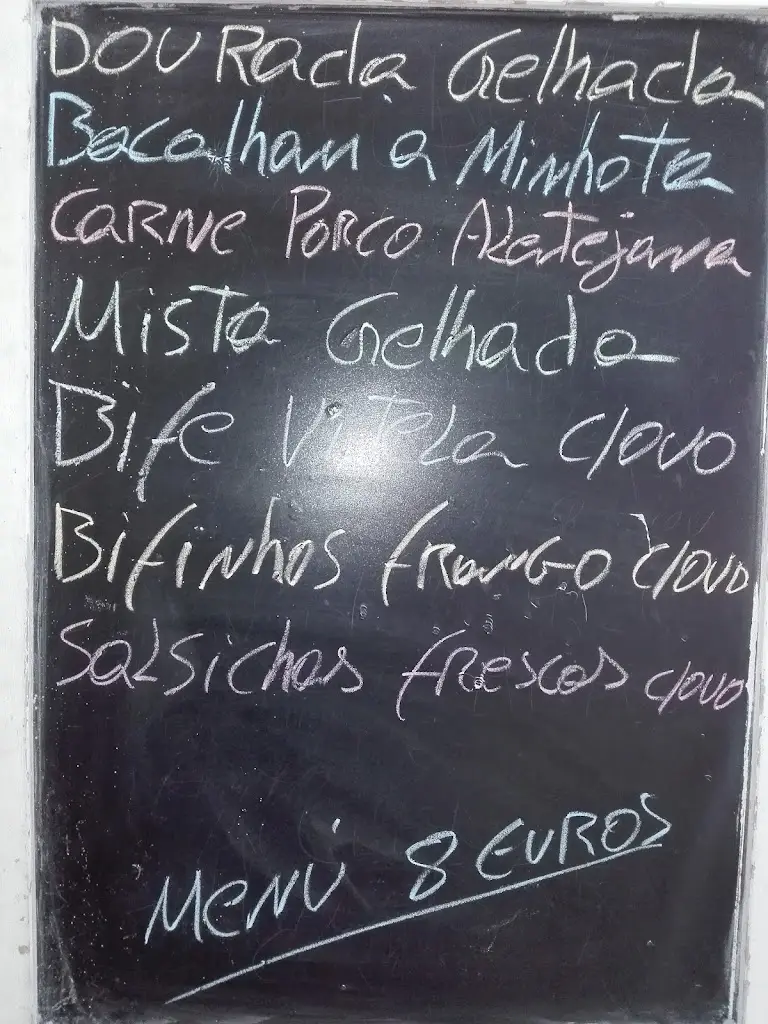 DOURada Grelhada
Bacalhau a Minhota
CARNE PORCO Alentejana
Mista Grelhada
Bife Vitela c/ovo
Bifinhos frango c/ovo
Salsichas frescas c/ovo
Menú 8 EUROS